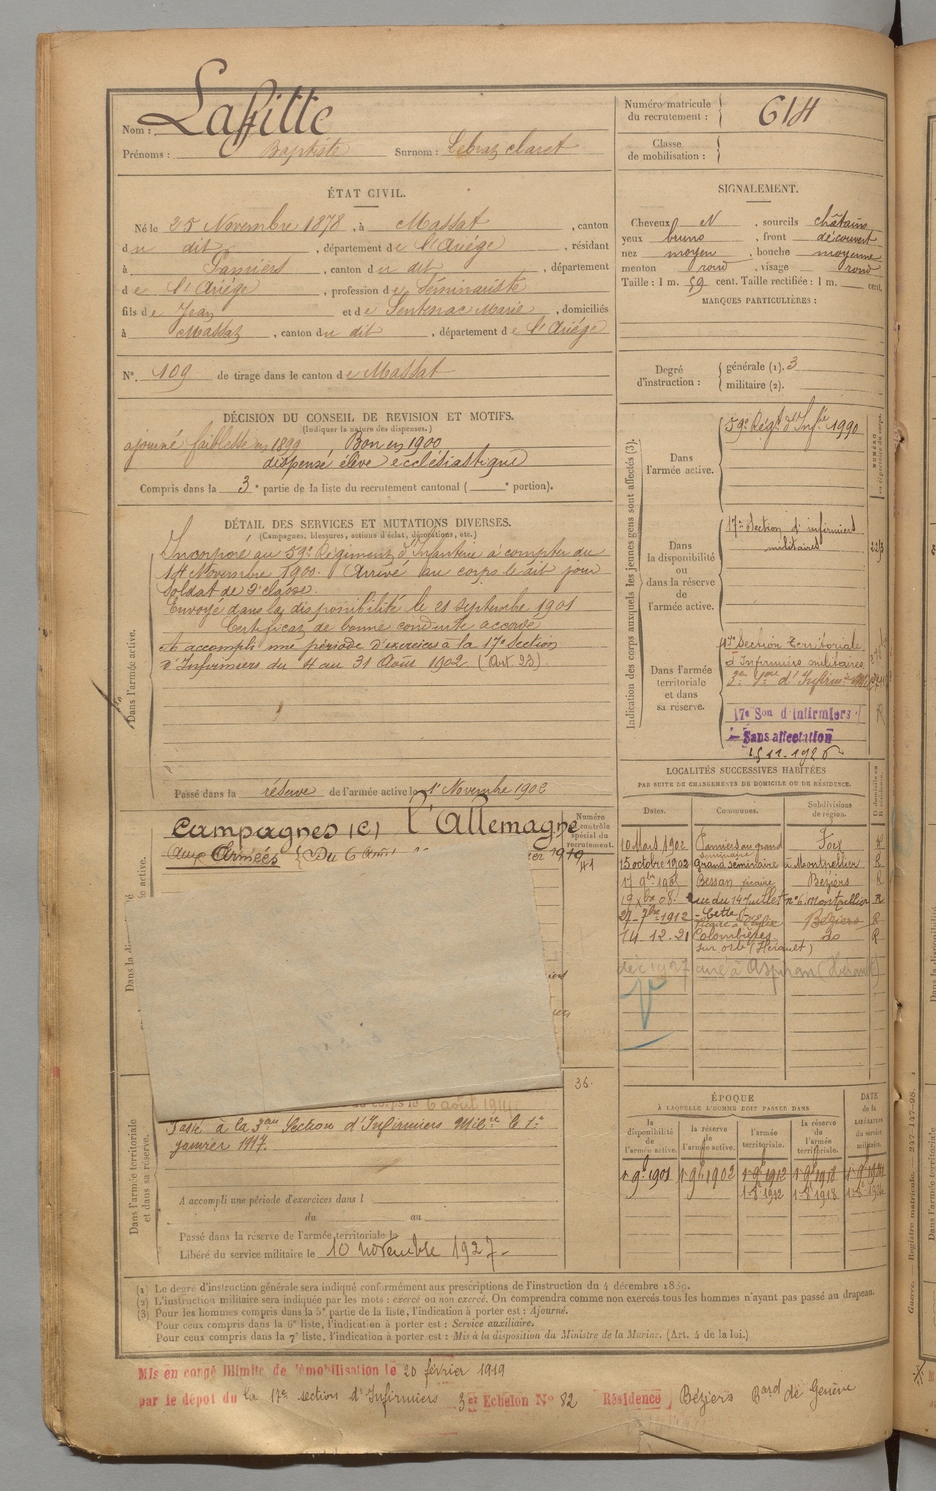 Nom : Laffitte
Prénoms : Baptiste Surnom : claret
Numéro matricule du recrutement : 614
Classe de mobilisation :
ÉTAT CIVIL.
Né le 25 Novembre 1878, à Massat, canton
du dit, département de l'Ariége, résidant
à Pamiers, canton du dit, département
de l'Ariége, profession de Séminariste
fils de Jean et de Sentenac Marie, domiciliés
à Massat, canton du dit, département de l'Ariége
N°. 109 de tirage dans le canton de Massat
SIGNALEMENT.
Cheveux N, sourcils châtains
yeux bruns, front découvert
nez moyen, bouche moyenne
menton rond, visage rond
Taille : 1 m. 59 cent. Taille rectifiée : 1 m. cent.
MARQUES PARTICULIÈRES :
Degré d'instruction : générale (1). 3
militaire (2).
DÉCISION DU CONSEIL DE REVISION ET MOTIFS.
(Indiquer la nature des dispenses.)
ajourné faiblesse en 1899 Bon en 1900
dispensé élève ecclésiastique
Compris dans la 3e partie de la liste du recrutement cantonal ( portion).
DÉTAIL DES SERVICES ET MUTATIONS DIVERSES.
(Campagnes, blessures, actions d'éclat, décorations, etc.)
Dans l'armée active.
Incorporé au 59e Régiment d'Infanterie à compter du
14 Novembre 1900. Arrivé au corps le dit jour
Soldat de 2e classe.
Envoyé dans la disponibilité le 21 septembre 1901
Certificat de bonne conduite accordé
A accompli une période d'exercices à la 17e Section
d'Infirmiers du 4 au 31 Août 1902 (Art. 23).
Passé dans la réserve de l'armée active le 1er Novembre 1902
Indication des corps auxquels les jeunes gens sont affectés (3).
Dans l'armée active.
59e Régt d'Infie 1990
Dans la disponibilité ou dans la réserve de l'armée active.
17e Section d'infirmiers
militaires
Dans l'armée territoriale et dans sa réserve.
Section Territoriale
d'Infirmiers militaires
17e Son d'Infirmiers
Sans affectation
Campagnes (C) l'Allemagne
aux Armées
1919
Numéro contrôle spécial du recrutement.
41
36.
LOCALITÉS SUCCESSIVES HABITÉES
PAR SUITE DE CHANGEMENTS DE DOMICILE OU DE RÉSIDENCE.
Dates. Communes. Subdivisions de région.
10 Mars 1902 Pamiers au grand séminaire Foix
15 octobre 1902 Grand séminaire à Montpellier R
Bessan vicaire Béziers R
rue du 14 Juillet n° 6 Montpellier R
1912 Cette Béziers R
14 12. 21 Colombières R
sur orb (Hérault)
déc 1927 curé à Aspiran (Hérault)
6 août 1914
Dans l'armée territoriale et dans sa réserve.
Passé à la 3eme Section d'Infirmiers Milires le 1er
janvier 1917.
A accompli une période d'exercices dans l
du au
Passé dans la réserve de l'armée territoriale le
Libéré du service militaire le 10 novembre 1927.
ÉPOQUE
A LAQUELLE L'HOMME DOIT PASSER DANS
la disponibilité de l'armée active. la réserve de l'armée active. l'armée territoriale. la réserve de l'armée territoriale. DATE de la LIBÉRATION du service militaire.
1 9bre 1901 1 9bre 1902 1 9bre 1912 1 9bre 1918
(1) Le degré d'instruction générale sera indiqué conformément aux prescriptions de l'instruction du 4 décembre 1889.
(2) L'instruction militaire sera indiquée par les mots : exercé ou non exercé. On comprendra comme non exercés tous les hommes n'ayant pas passé au drapeau.
(3) Pour les hommes compris dans la 5e partie de la liste, l'indication à porter est : Ajourné.
Pour ceux compris dans la 6e liste, l'indication à porter est : Service auxiliaire.
Pour ceux compris dans la 7e liste, l'indication à porter est : Mis à la disposition du Ministre de la Marine. (Art. 4 de la loi.)
Mis en congé illimité de démobilisation le 20 février 1919
par le dépôt du la 17e section d'Infirmiers 3e Echelon N° 82 Résidence Béziers Bard de Genève